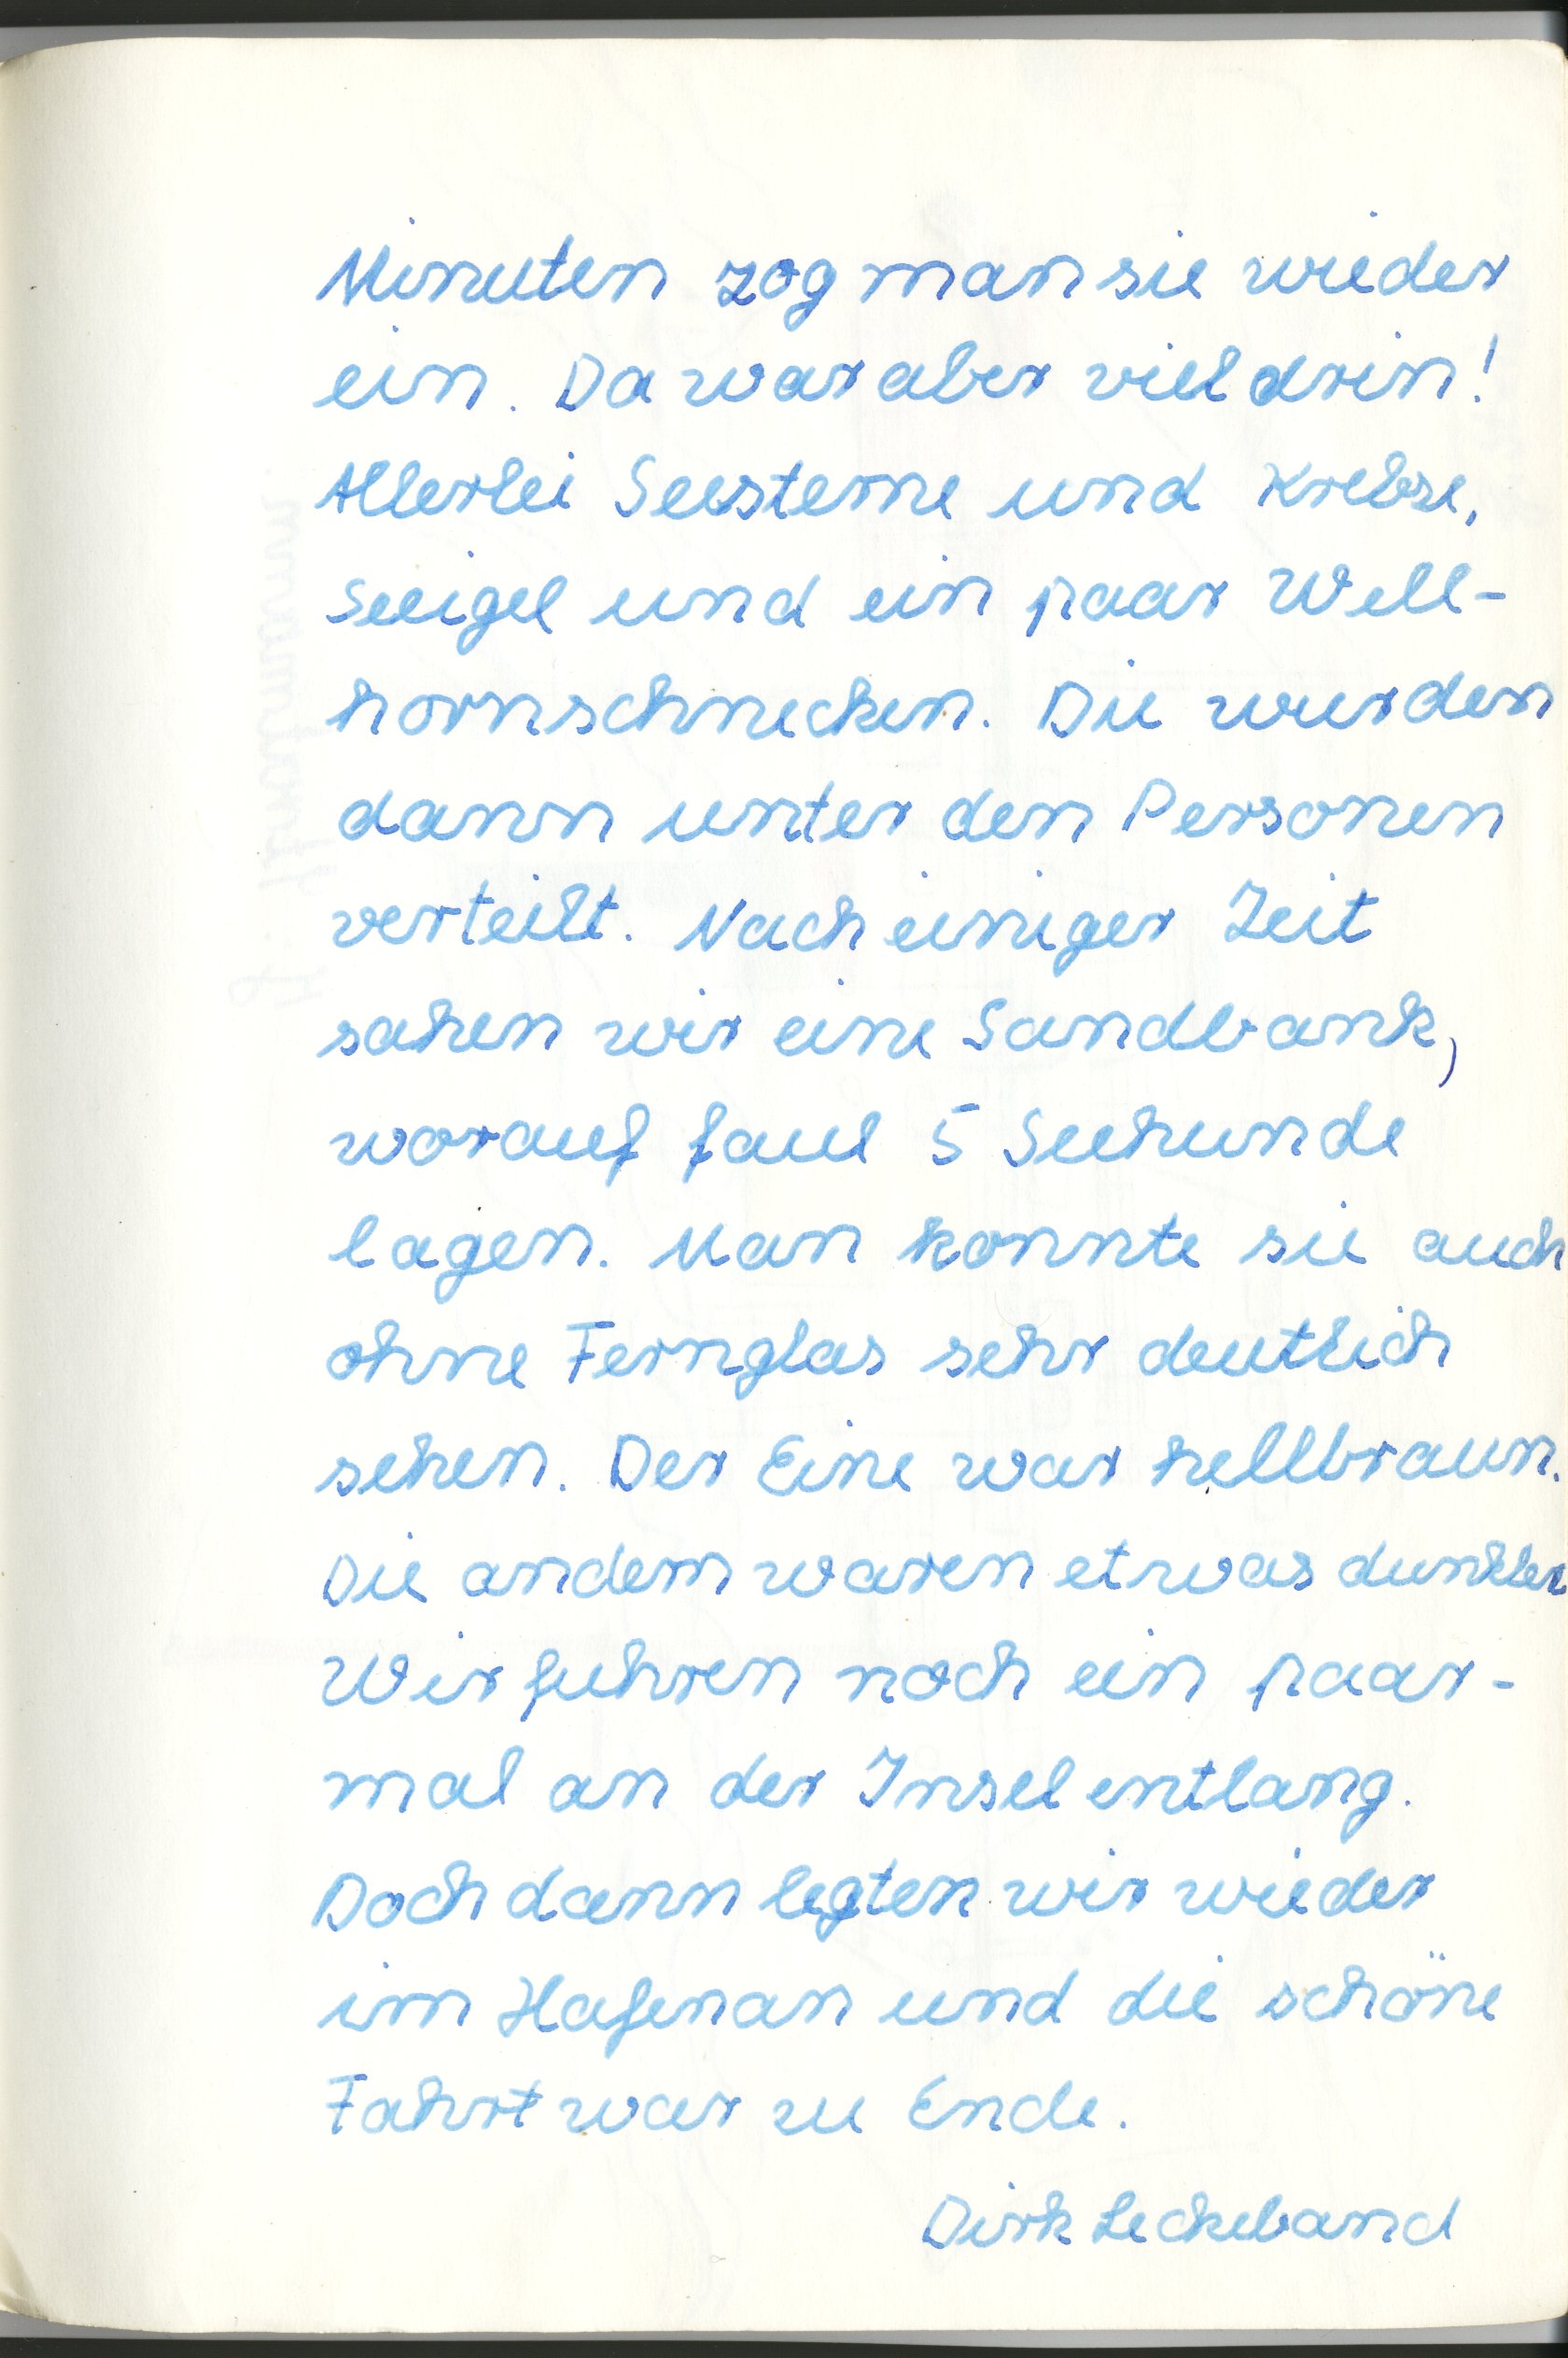 Minuten zog man sie wieder
ein. Da war aber viel drin!
Allerlei Seesterne und Krebse,
Seeigel und ein paar Well-
hornschnecken. Die wurden
dann unter den Personen
verteilt. Nach einiger Zeit
sahen wir eine Sandbank,
worauf faul 5 Seehunde
lagen. Man konnte sie auch
ohne Fernglas sehr deutlich
sehen. Der Eine war hellbraun.
Die andern waren etwas dunkler
Wir fuhren noch ein paar-
mal an der Insel entlang.
Doch dann legten wir wieder
im Hafen an und die schöne
Fahrt war zu Ende.
Dirk Leckeband